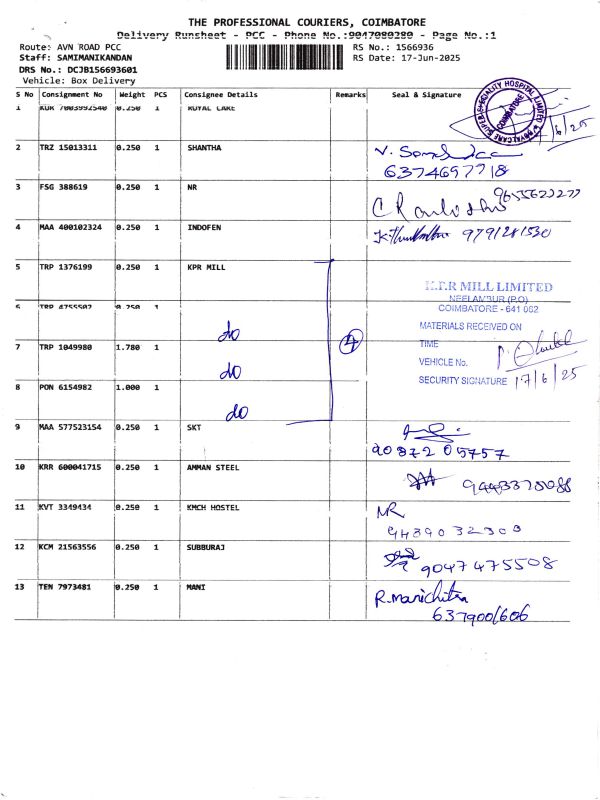 THE PROFESSIONAL COURIERS, COIMBATORE
Delivery Runsheet - PCC - Phone No.:9047080280 - Page No.:1
Route: AVN ROAD PCC
Staff: SAMIMANIKANDAN
DRS No.: DCJB156693601
Vehicle: Box Delivery
RS No.: 1566936
RS Date: 17-Jun-2025
S No Consignment No Weight PCS Consignee Details Remarks Seal & Signature
1 KDK 7003992540 0.250 1 ROYAL CARE
SPECIALITY HOSPITAL LIMITED
COIMBATORE
/6/25
2 TRZ 15013311 0.250 1 SHANTHA
6374697718
3 FSG 388619 0.250 1 NR
9655622277
4 MAA 400102324 0.250 1 INDOFEN
9791281530
5 TRP 1376199 0.250 1 KPR MILL
K.P.R MILL LIMITED
NEELAMBUR (P.O)
COIMBATORE - 641 062
6 TRP 4755507 0.250 1
do
MATERIALS RECEIVED ON
7 TRP 1049980 1.780 1 do
4
TIME
VEHICLE No.
SECURITY SIGNATURE 17/6/25
8 PON 6154982 1.000 1 do
9 MAA 577523154 0.250 1 SKT
90872 05757
10 KRR 600041715 0.250 1 AMMAN STEEL
11 KVT 3349434 0.250 1 KMCH HOSTEL
NR
12 KCM 21563556 0.250 1 SUBBURAJ
9047475508
13 TEN 7973481 0.250 1 MANI
R.Manichitra
637900/606